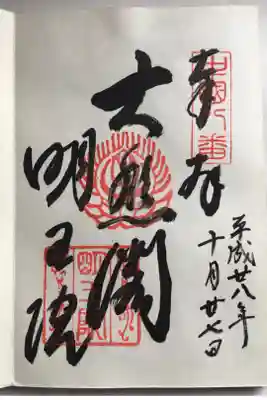 中国八番
奉拝
平成廿八年
十月廿七日
大悲閣
明王院